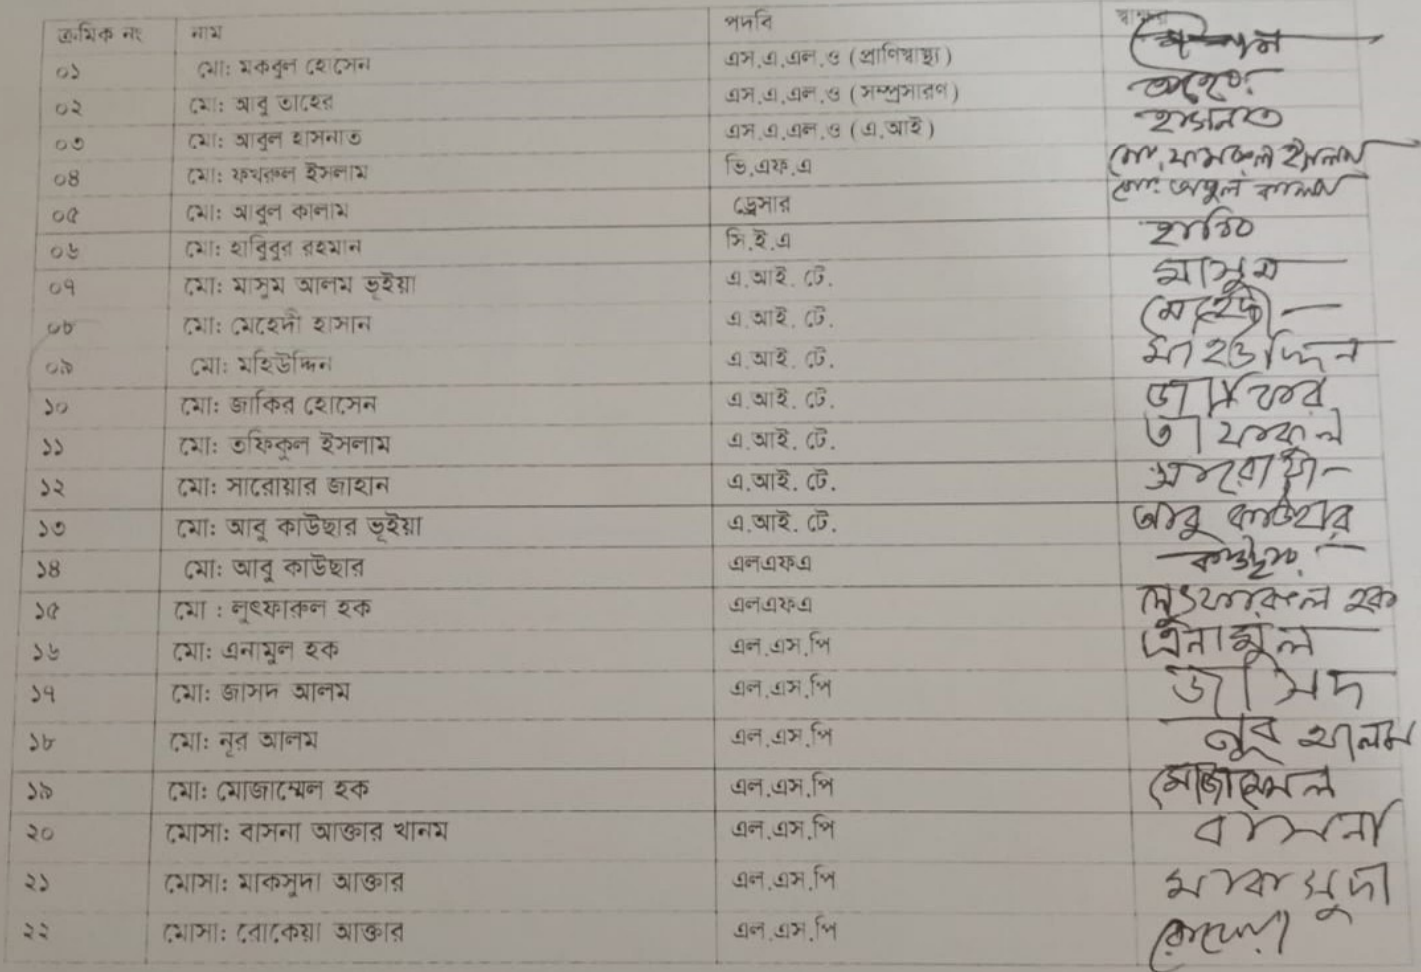 ক্রমিক নং নাম পদবি স্বাক্ষর
০১ মো: মকবুল হোসেন এস.এ.এল.ও (প্রাণিস্বাস্থ্য)
০২ মো: আবু তাহের এস.এ.এল.ও (সম্প্রসারণ) তাহের
০৩ মো: আবুল হাসনাত এস.এ.এল.ও (এ.আই) হাসনাত
০৪ মো: ফখরুল ইসলাম ভি.এফ.এ
০৫ মো: আবুল কালাম ড্রেসার মো: আবুল কালাম
০৬ মো: হাবিবুর রহমান সি.ই.এ হাবিব
০৭ মো: মাসুম আলম ভূইয়া এ.আই. টে. মাসুম
০৮ মো: মেহেদী হাসান এ.আই. টে. মেহেদী
০৯ মো: মহিউদ্দিন এ.আই. টে. মহিউদ্দিন
১০ মো: জাকির হোসেন এ.আই. টে. জাকির
১১ মো: তফিকুল ইসলাম এ.আই. টে. তফিকুল
১২ মো: সারোয়ার জাহান এ.আই. টে.
১৩ মো: আবু কাউছার ভূইয়া এ.আই. টে. আবু কাউছার
১৪ মো: আবু কাউছার এলএফএ কাউছার
১৫ মো : লুৎফারুল হক এলএফএ লুৎফারুল হক
১৬ মো: এনামুল হক এল.এস.পি এনামুল
১৭ মো: জাসদ আলম এল.এস.পি জাসদ
১৮ মো: নূর আলম এল.এস.পি নুর আলম
১৯ মো: মোজাম্মেল হক এল.এস.পি মোজাম্মেল
২০ মোসা: বাসনা আক্তার খানম এল.এস.পি বাসনা
২১ মোসা: মাকসুদা আক্তার এল.এস.পি মাকসুদা
২২ মোসা: রোকেয়া আক্তার এল.এস.পি রোকেয়া